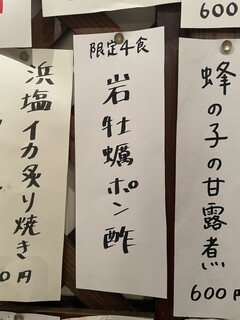 限定4食
岩牡蠣ポン酢
蜂の子の甘露煮
600円
浜塩イカ炙り焼き
0円
600